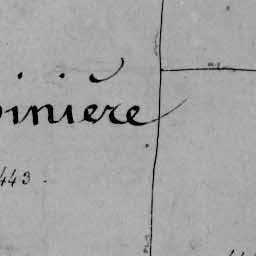 inière
443.